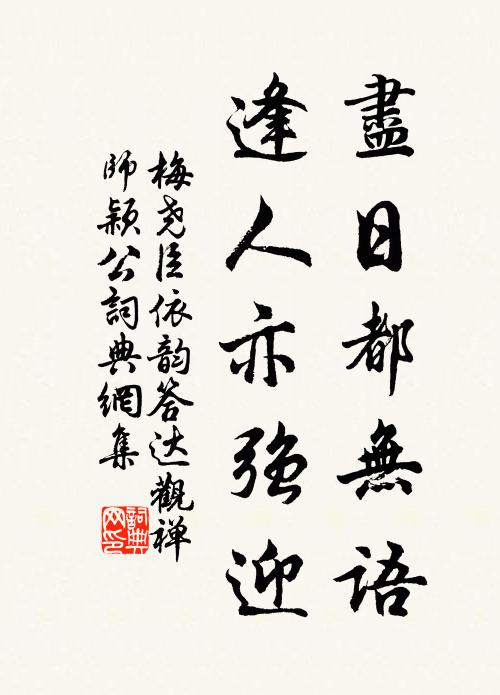 盡日都無語
逢人亦強迎
梅尧臣依韵答达觀禅
師颖公詞典網集
詞典网印